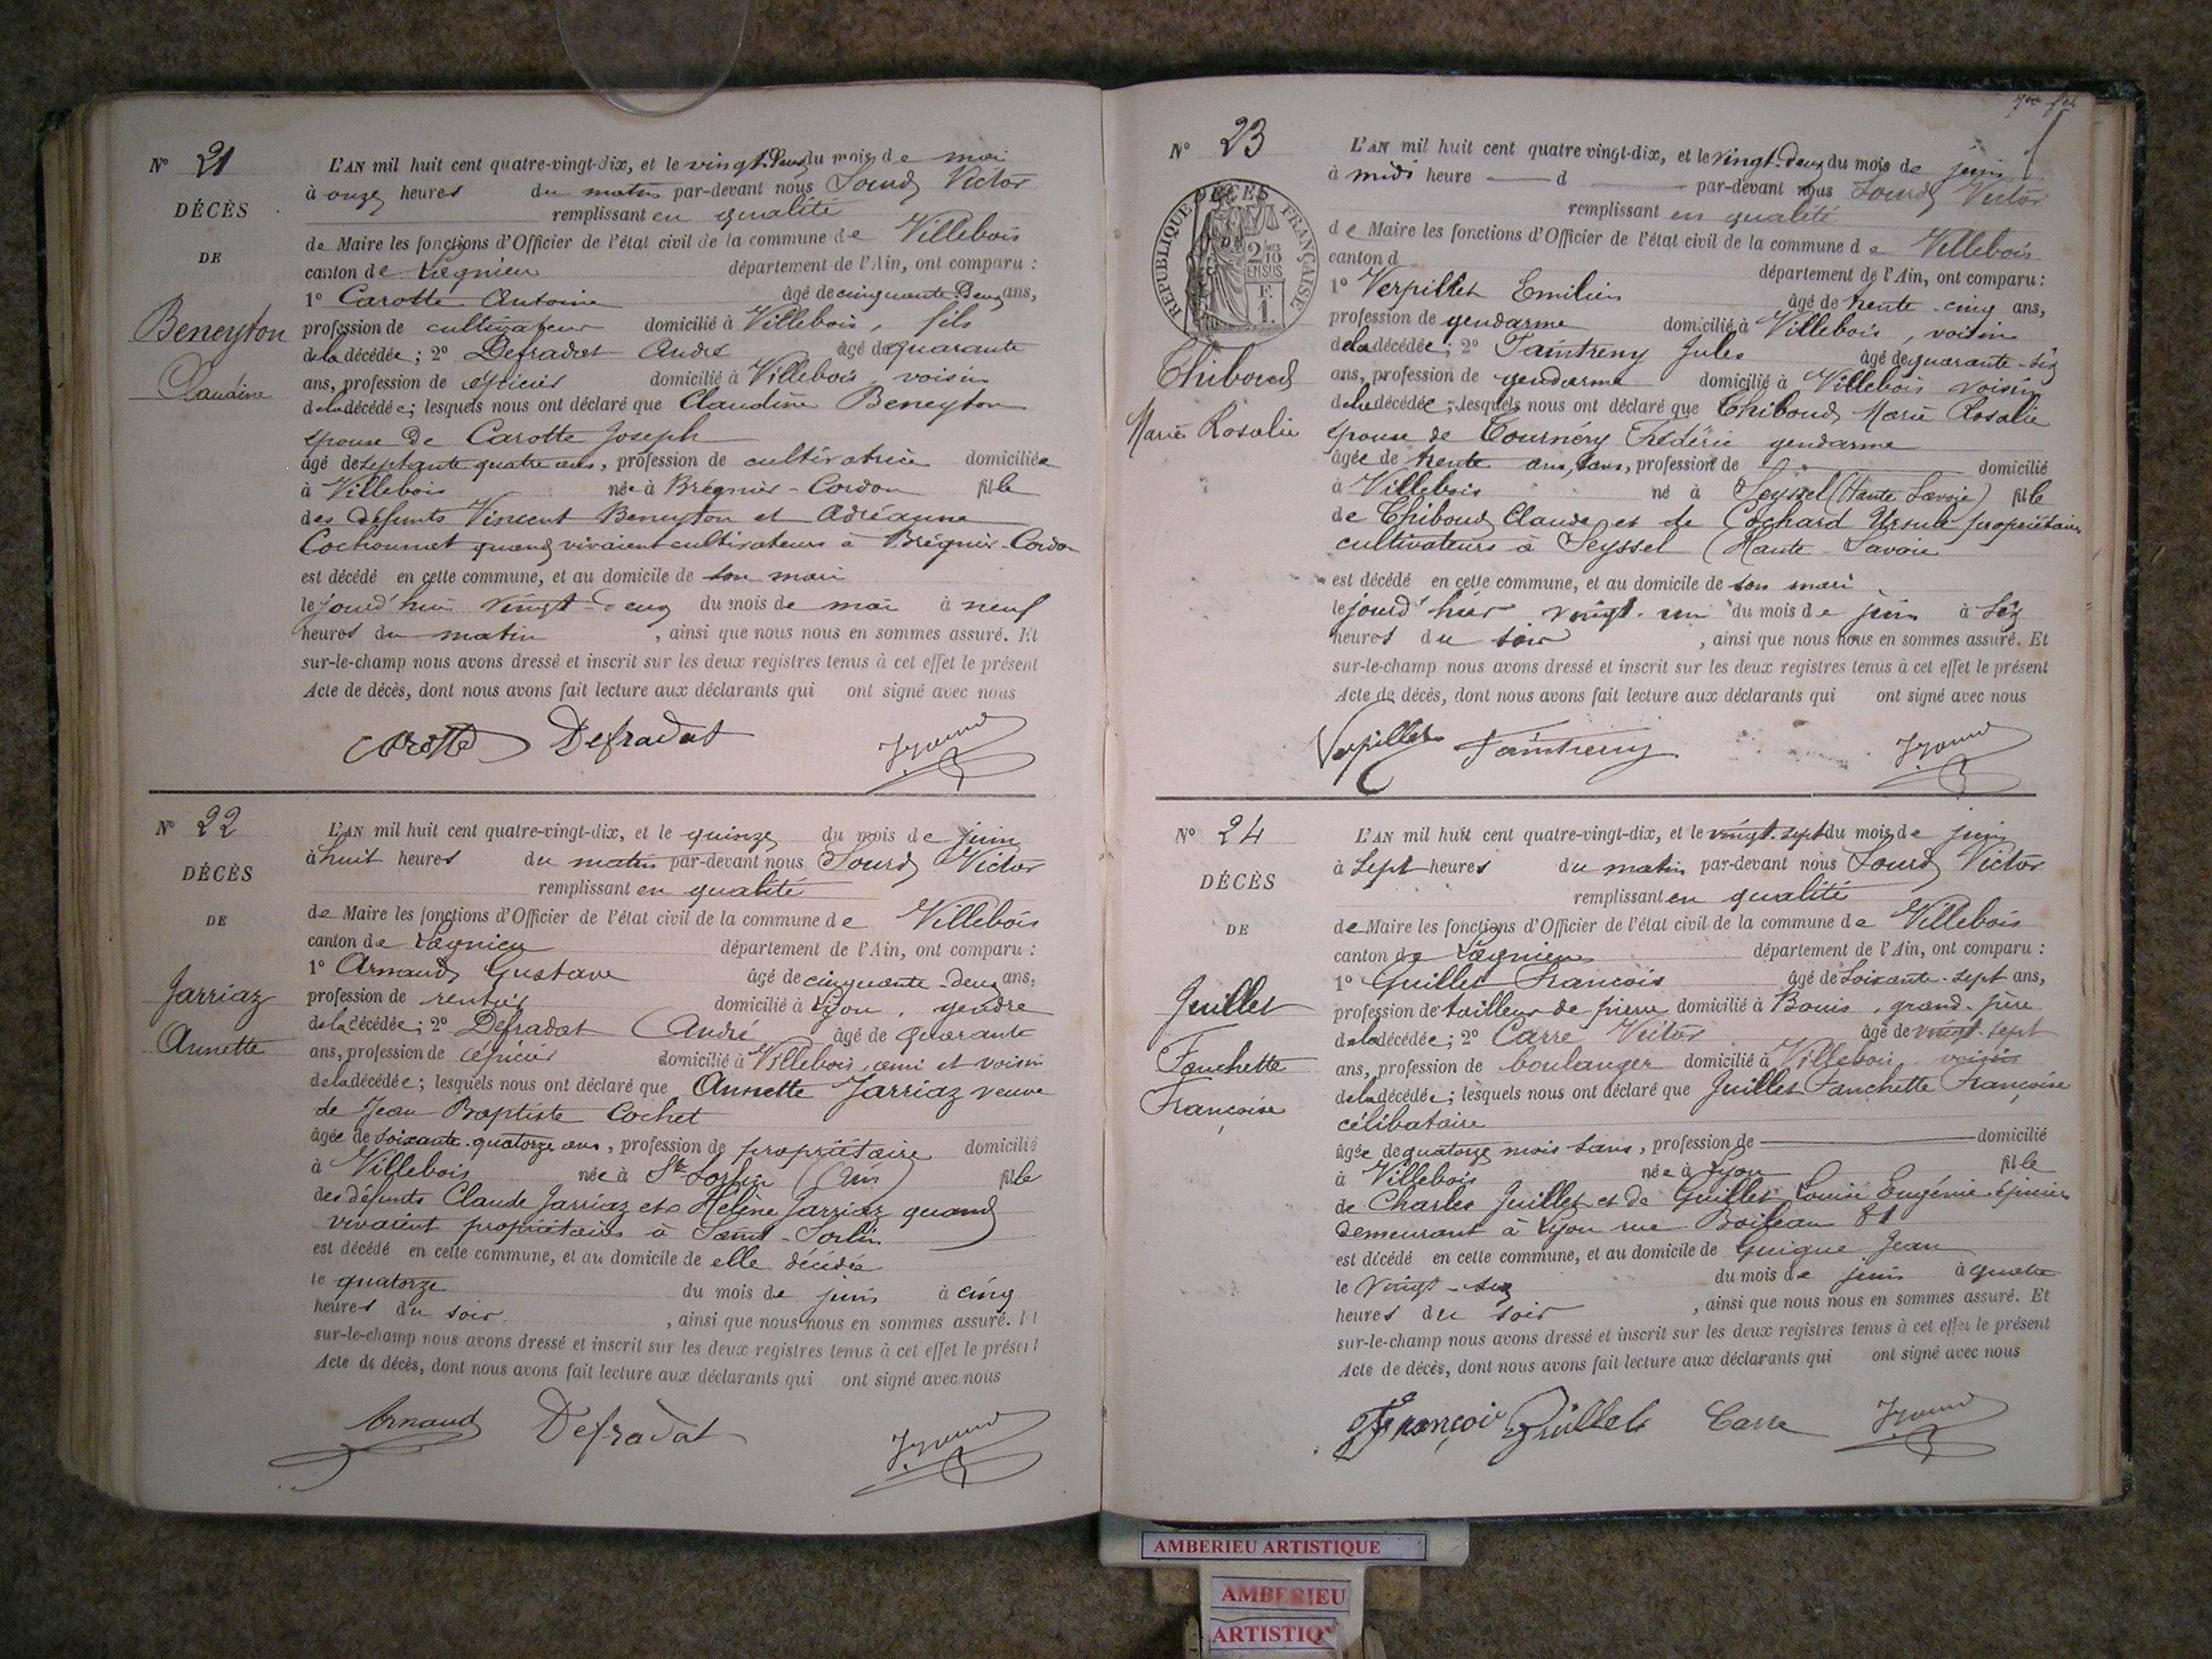 N° 21
DÉCÈS
DE
Beneyton
Claudine
L'AN mil huit cent quatre-vingt-dix, et le vingt-deux du mois de mai
à onze heures du matin par-devant nous Sourd Victor
remplissant en qualité
de Maire les fonctions d'Officier de l'état civil de la commune de Villebois
canton de Lagnieu département de l'Ain, ont comparu :
1° Carotte Antoine âgé de cinquante-deux ans,
profession de cultivateur domicilié à Villebois, fils
de la décédée ; 2° Defradat André âgé de quarante
ans, profession de épicier domicilié à Villebois, voisin
de la décédée ; lesquels nous ont déclaré que Claudine Beneyton
épouse de Carotte Joseph
âgé de septante quatre ans, profession de cultivatrice domiciliée
à Villebois née à Brégnier-Cordon fille
des défunts Vincent Beneyton et Adréanne
Cochonnat quand vivaient cultivateurs à Brégnier-Cordon
est décédé en cette commune, et au domicile de son mari
le jourd'hui vingt-deux du mois de mai à neuf
heures du matin , ainsi que nous nous en sommes assuré. Et
sur-le-champ nous avons dressé et inscrit sur les deux registres tenus à cet effet le présent
Acte de décès, dont nous avons fait lecture aux déclarants qui ont signé avec nous
Carotte Defradat
N° 22
DÉCÈS
DE
Jarriaz
Annette
L'AN mil huit cent quatre-vingt-dix, et le quinze du mois de juin
à huit heures du matin par-devant nous Sourd Victor
remplissant en qualité
de Maire les fonctions d'Officier de l'état civil de la commune de Villebois
canton de Lagnieu département de l'Ain, ont comparu :
1° Arnaud Gustave âgé de cinquante-deux ans,
profession de rentier domicilié à Lyon, gendre
de la décédée ; 2° Defradat André âgé de quarante
ans, profession de épicier domicilié à Villebois, ami et voisin
de la décédée ; lesquels nous ont déclaré que Annette Jarriaz veuve
de Jean Baptiste Cochet
âgée de soixante-quatorze ans, profession de propriétaire domicilié
à Villebois née à St Sorlin (Ain) fille
des défunts Claude Jarriaz et Hélène Jarriaz quand
vivaient propriétaires à Saint-Sorlin
est décédé en cette commune, et au domicile de elle décédée
le quatorze du mois de juin à cinq
heures du soir , ainsi que nous nous en sommes assuré. Et
sur-le-champ nous avons dressé et inscrit sur les deux registres tenus à cet effet le présent
Acte de décès, dont nous avons fait lecture aux déclarants qui ont signé avec nous
Arnaud Defradat
N° 23
DÉCÈS
RÉPUBLIQUE FRANÇAISE
2/10
EN SUS
F.
1.
Thiboud
Marie Rosalie
L'AN mil huit cent quatre vingt-dix, et le vingt-deux du mois de juin
à midi heure d par-devant nous Sourd Victor
remplissant en qualité
de Maire les fonctions d'Officier de l'état civil de la commune de Villebois
canton d département de l'Ain, ont comparu :
1° Verpillet Emilien âgé de trente-cinq ans,
profession de gendarme domicilié à Villebois, voisin
de la décédée ; 2° Taintreny Jules âgé de quarante-six
ans, profession de gendarme domicilié à Villebois voisin
de la décédée ; lesquels nous ont déclaré que Thiboud Marie Rosalie
épouse de Tournéry Frédéric gendarme
âgée de trente ans, sans, profession de domicilié
à Villebois né à Seyssel (Haute Savoie) fille
de Thiboud Claude et de Cochard Ursule propriétaires
cultivateurs à Seyssel (Haute-Savoie
est décédé en cette commune, et au domicile de son mari
le jourd'hier vingt-un du mois de juin à six
heures du soir , ainsi que nous nous en sommes assuré. Et
sur-le-champ nous avons dressé et inscrit sur les deux registres tenus à cet effet le présent
Acte de décès, dont nous avons fait lecture aux déclarants qui ont signé avec nous
Verpillet Taintreny
N° 24
DÉCÈS
DE
Juillet
Fanchette
Françoise
L'AN mil huit cent quatre-vingt-dix, et le vingt-sept du mois de juin
à sept heures du matin par-devant nous Sourd Victor
remplissant en qualité
de Maire les fonctions d'Officier de l'état civil de la commune de Villebois
canton de Lagnieu département de l'Ain, ont comparu :
1° Guillet François âgé de soixante-sept ans,
profession de tailleur de pierre domicilié à Bouis, grand-père
de la décédée ; 2° Carre Victor âgé de vingt-sept
ans, profession de boulanger domicilié à Villebois, voisin
de la décédée ; lesquels nous ont déclaré que Juillet Fanchette Françoise
célibataire
âgée de quatorze mois sans, profession de domicilié
à Villebois née à Lyon fille
de Charles Juillet et de Guillet Louise Eugénie épiciers
demeurant à Lyon rue Boileau 81
est décédé en cette commune, et au domicile de Guigue Jean
le vingt-six du mois de juin à quatre
heures du soir , ainsi que nous nous en sommes assuré. Et
sur-le-champ nous avons dressé et inscrit sur les deux registres tenus à cet effet le présent
Acte de décès, dont nous avons fait lecture aux déclarants qui ont signé avec nous
François Guillet Carre
AMBERIEU ARTISTIQUE
AMBERIEU
ARTISTIQ